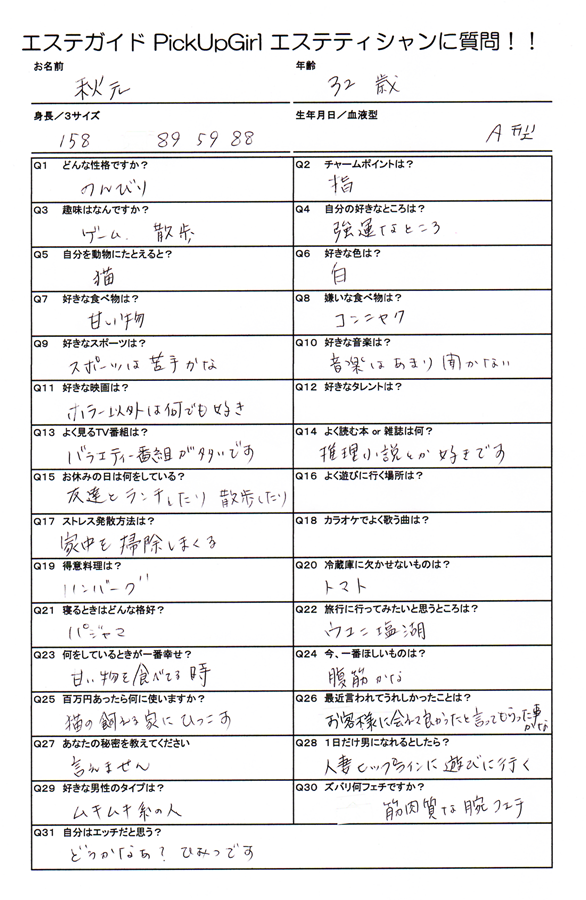 エステガイド PickUpGirl エステティシャンに質問！！
お名前 年齢
秋元 32 歳
身長／3サイズ 生年月日／血液型
158 89 59 88 A型
Q1 どんな性格ですか？ Q2 チャームポイントは？
のんびり 指
Q3 趣味はなんですか？ Q4 自分の好きなところは？
ゲーム、散歩 強運なところ
Q5 自分を動物にたとえると？ Q6 好きな色は？
猫 白
Q7 好きな食べ物は？ Q8 嫌いな食べ物は？
甘い物 コンニャク
Q9 好きなスポーツは？ Q10 好きな音楽は？
スポーツは苦手かな 音楽はあまり聞かない
Q11 好きな映画は？ Q12 好きなタレントは？
ホラー以外は何でも好き
Q13 よく見るTV番組は？ Q14 よく読む本 or 雑誌は何？
バラエティー番組が多いです 推理小説とか好きです
Q15 お休みの日は何をしている？ Q16 よく遊びに行く場所は？
友達とランチしたり 散歩したり
Q17 ストレス発散方法は？ Q18 カラオケでよく歌う曲は？
家中を掃除しまくる
Q19 得意料理は？ Q20 冷蔵庫に欠かせないものは？
ハンバーグ トマト
Q21 寝るときはどんな格好？ Q22 旅行に行ってみたいと思うところは？
パジャマ ウユニ塩湖
Q23 何をしているときが一番幸せ？ Q24 今、一番ほしいものは？
甘い物を食べてる時 腹筋かな
Q25 百万円あったら何に使いますか？ Q26 最近言われてうれしかったことは？
猫の飼える家にひっこす お客様に会えて良かったと言ってもらった事かな
Q27 あなたの秘密を教えてください Q28 1日だけ男になれるとしたら？
言えません 人妻ヒップラインに遊びに行く
Q29 好きな男性のタイプは？ Q30 ズバリ何フェチですか？
ムキムキ系の人 筋肉質な腕フェチ
Q31 自分はエッチだと思う？
どうかなぁ？ひみつです